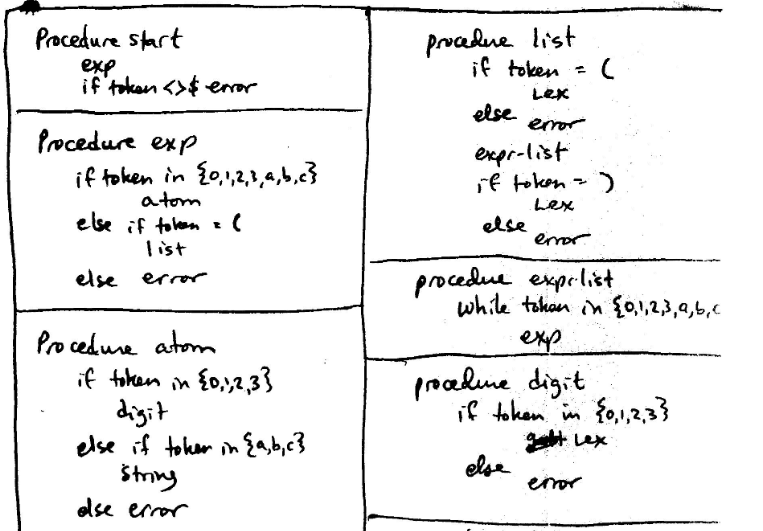 Procedure start
exp
if token <>$ error
Procedure exp
if token in {0,1,2,3,a,b,c}
atom
else if token = (
list
else error
Procedure atom
if token in {0,1,2,3}
digit
else if token in {a,b,c}
string
else error
procedure list
if token = (
Lex
else
error
expr-list
if token = )
Lex
else
error
procedure expr-list
while token in {0,1,2,3,a,b,c
exp
procedure digit
if token in {0,1,2,3}
Lex
else
error